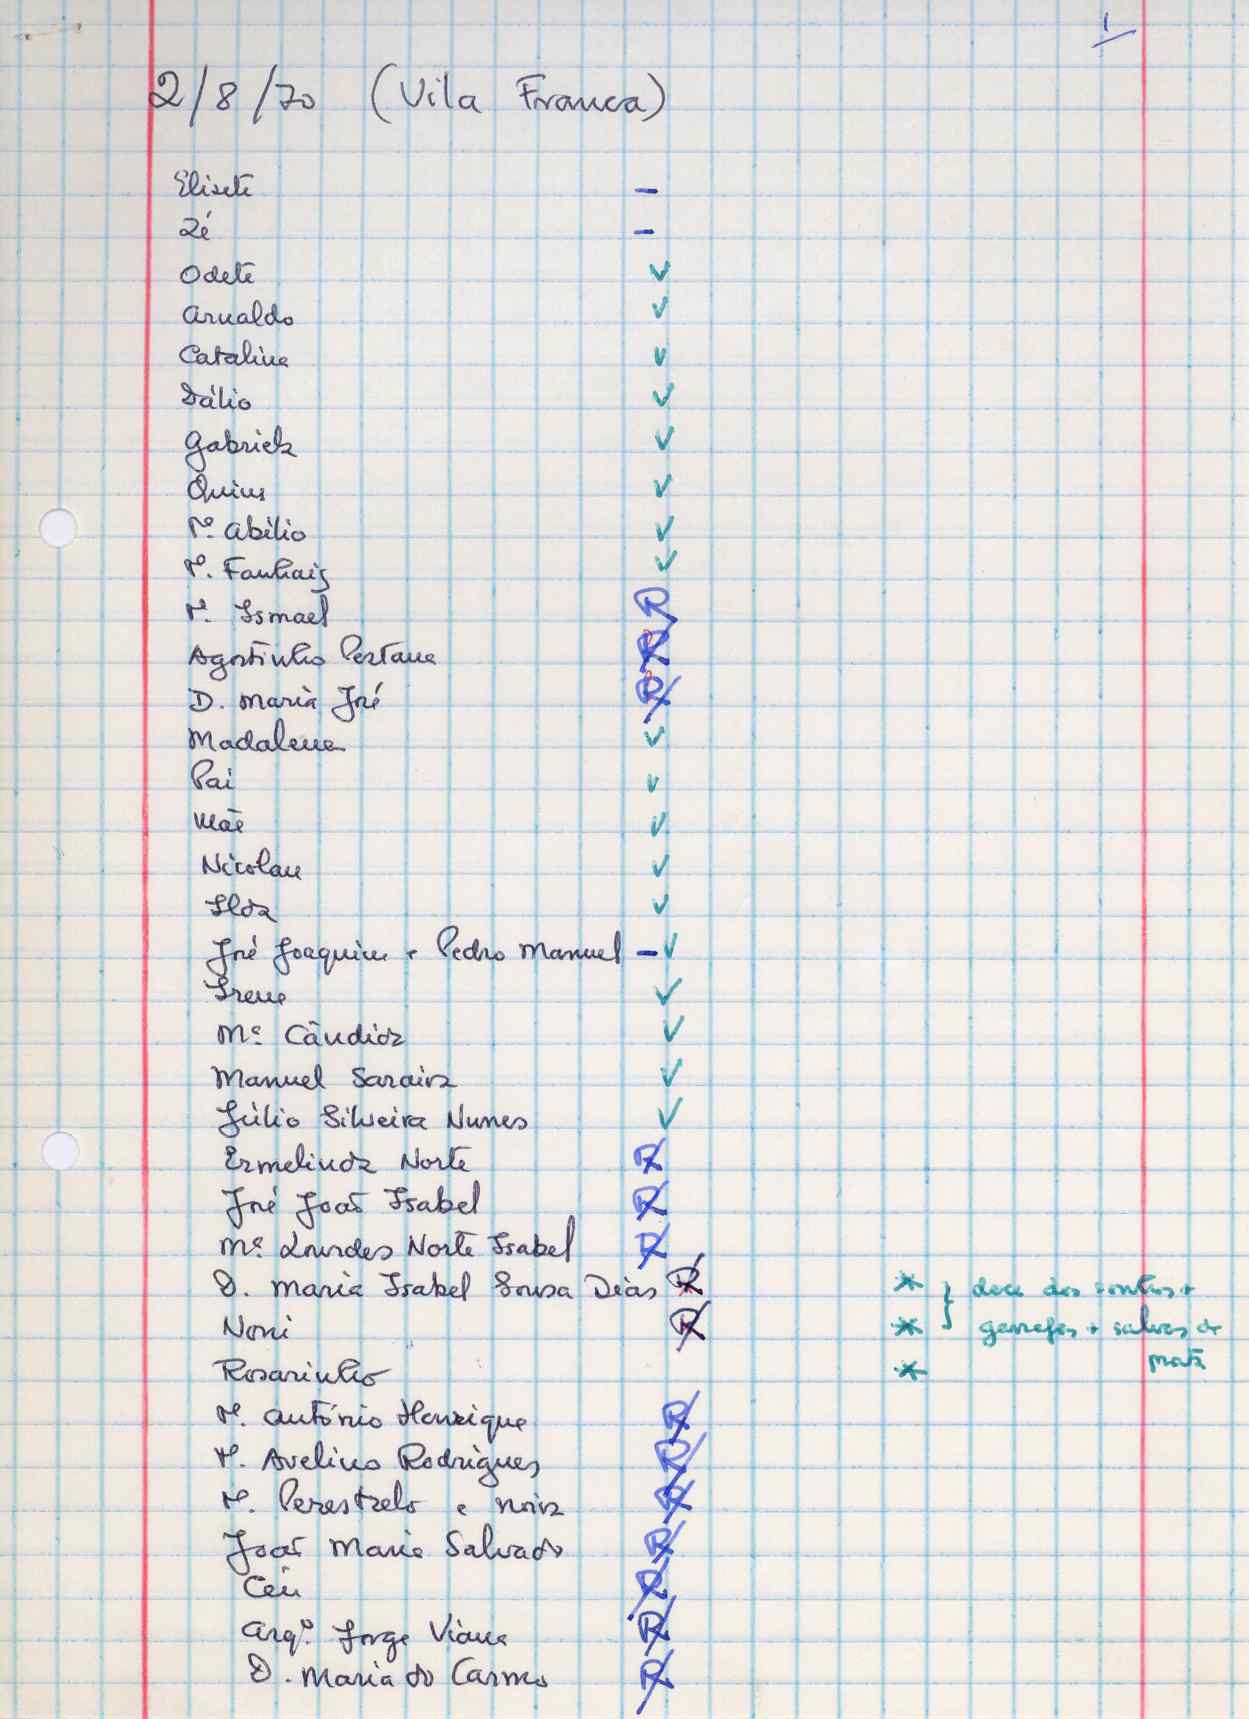 1
2/8/70 (Vila Franca)
Elisete –
Zé –
Odete ✓
Arnaldo ✓
Catalina ✓
Dálio ✓
Gabriela ✓
Quim ✓
Pe. Abílio ✓
P. Fanhais ✓
P. Ismael R
Agostinho Pestana R
D. Maria José R
Madalena ✓
Pai ✓
Mãe ✓
Nicolau ✓
Ilda ✓
José Joaquim e Pedro Manuel – ✓
Irene ✓
Mª Cândida ✓
Manuel Saraiva ✓
Júlio Silveira Nunes ✓
Ermelinda Norte R
José João Isabel R
Mª Lourdes Norte Isabel R
D. Maria Isabel Sousa Dias R * } doce dos
Noni R * garrafas + salvas de
Rosarinho * prata
P. António Henrique R
P. Avelino Rodrigues R
P. Perestrelo e noiva R
João Maria Salvado R
Céu R
Arqº. Jorge Viana R
D. Maria do Carmo R